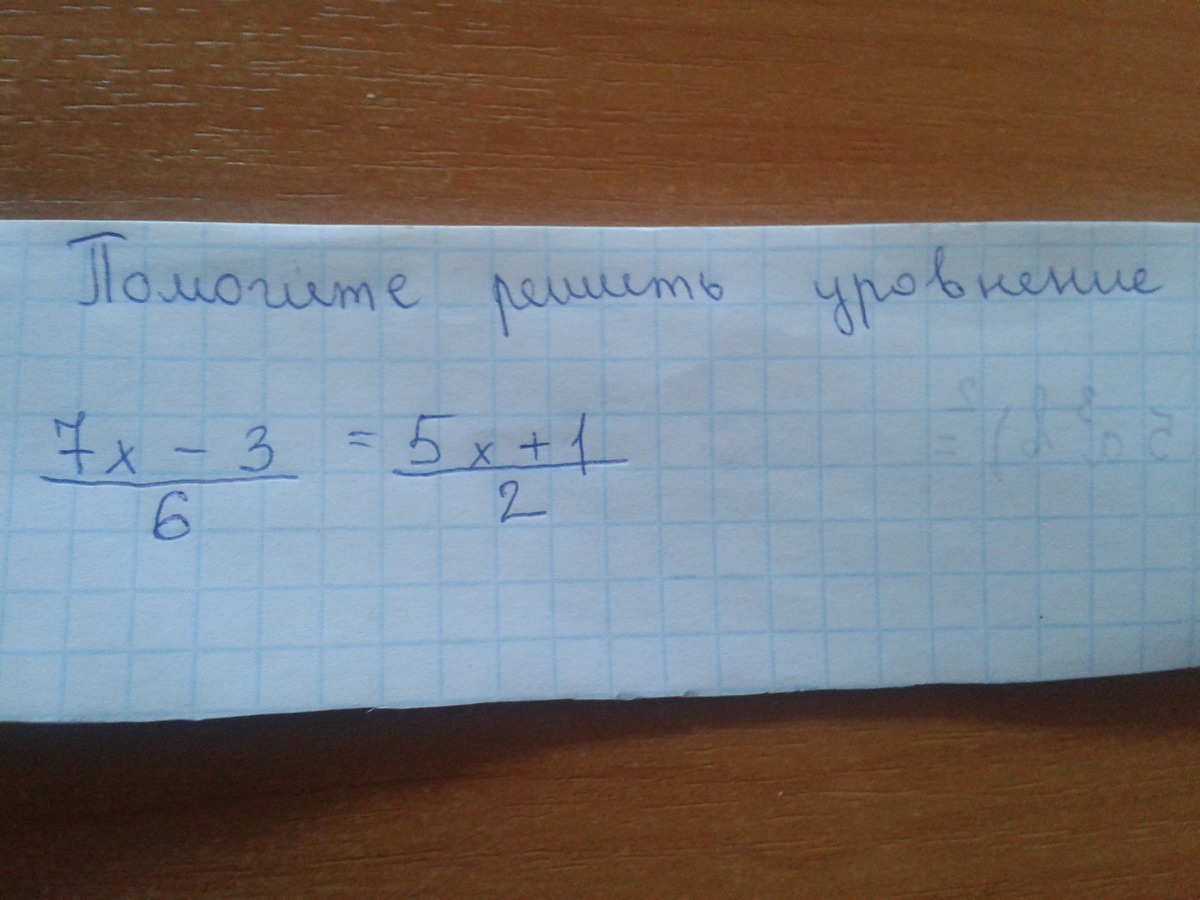 Помогите решить уровнение
7x - 3 = 5x + 1
6 2